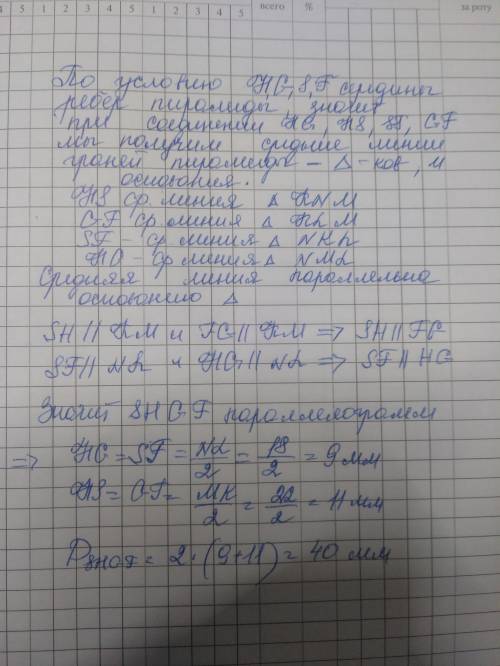 4 5 1 2 3 4 5 1 2 3 4 5 всего % за роту
По условию HG, S, F середины
ребер пирамиды значит
при соединении HG, HS, SF, GF
мы получим средние линии
граней пирамиды - Δ-ков, и
основания.
HS ср. линия Δ KNM
GF ср. линия Δ KLM
SF - ср. линия Δ NKL
HG - ср. линия Δ NML
Средняя линия параллельна
основанию Δ
SH || KM и FG || KM => SH || FG
SF || NL и HG || NL => SF || HG
Значит SHGF параллелограмм
=> HG = SF = NL/2 = 18/2 = 9 мм
HS = GF = MK/2 = 22/2 = 11 мм
P SHGF = 2 · (9+11) = 40 мм